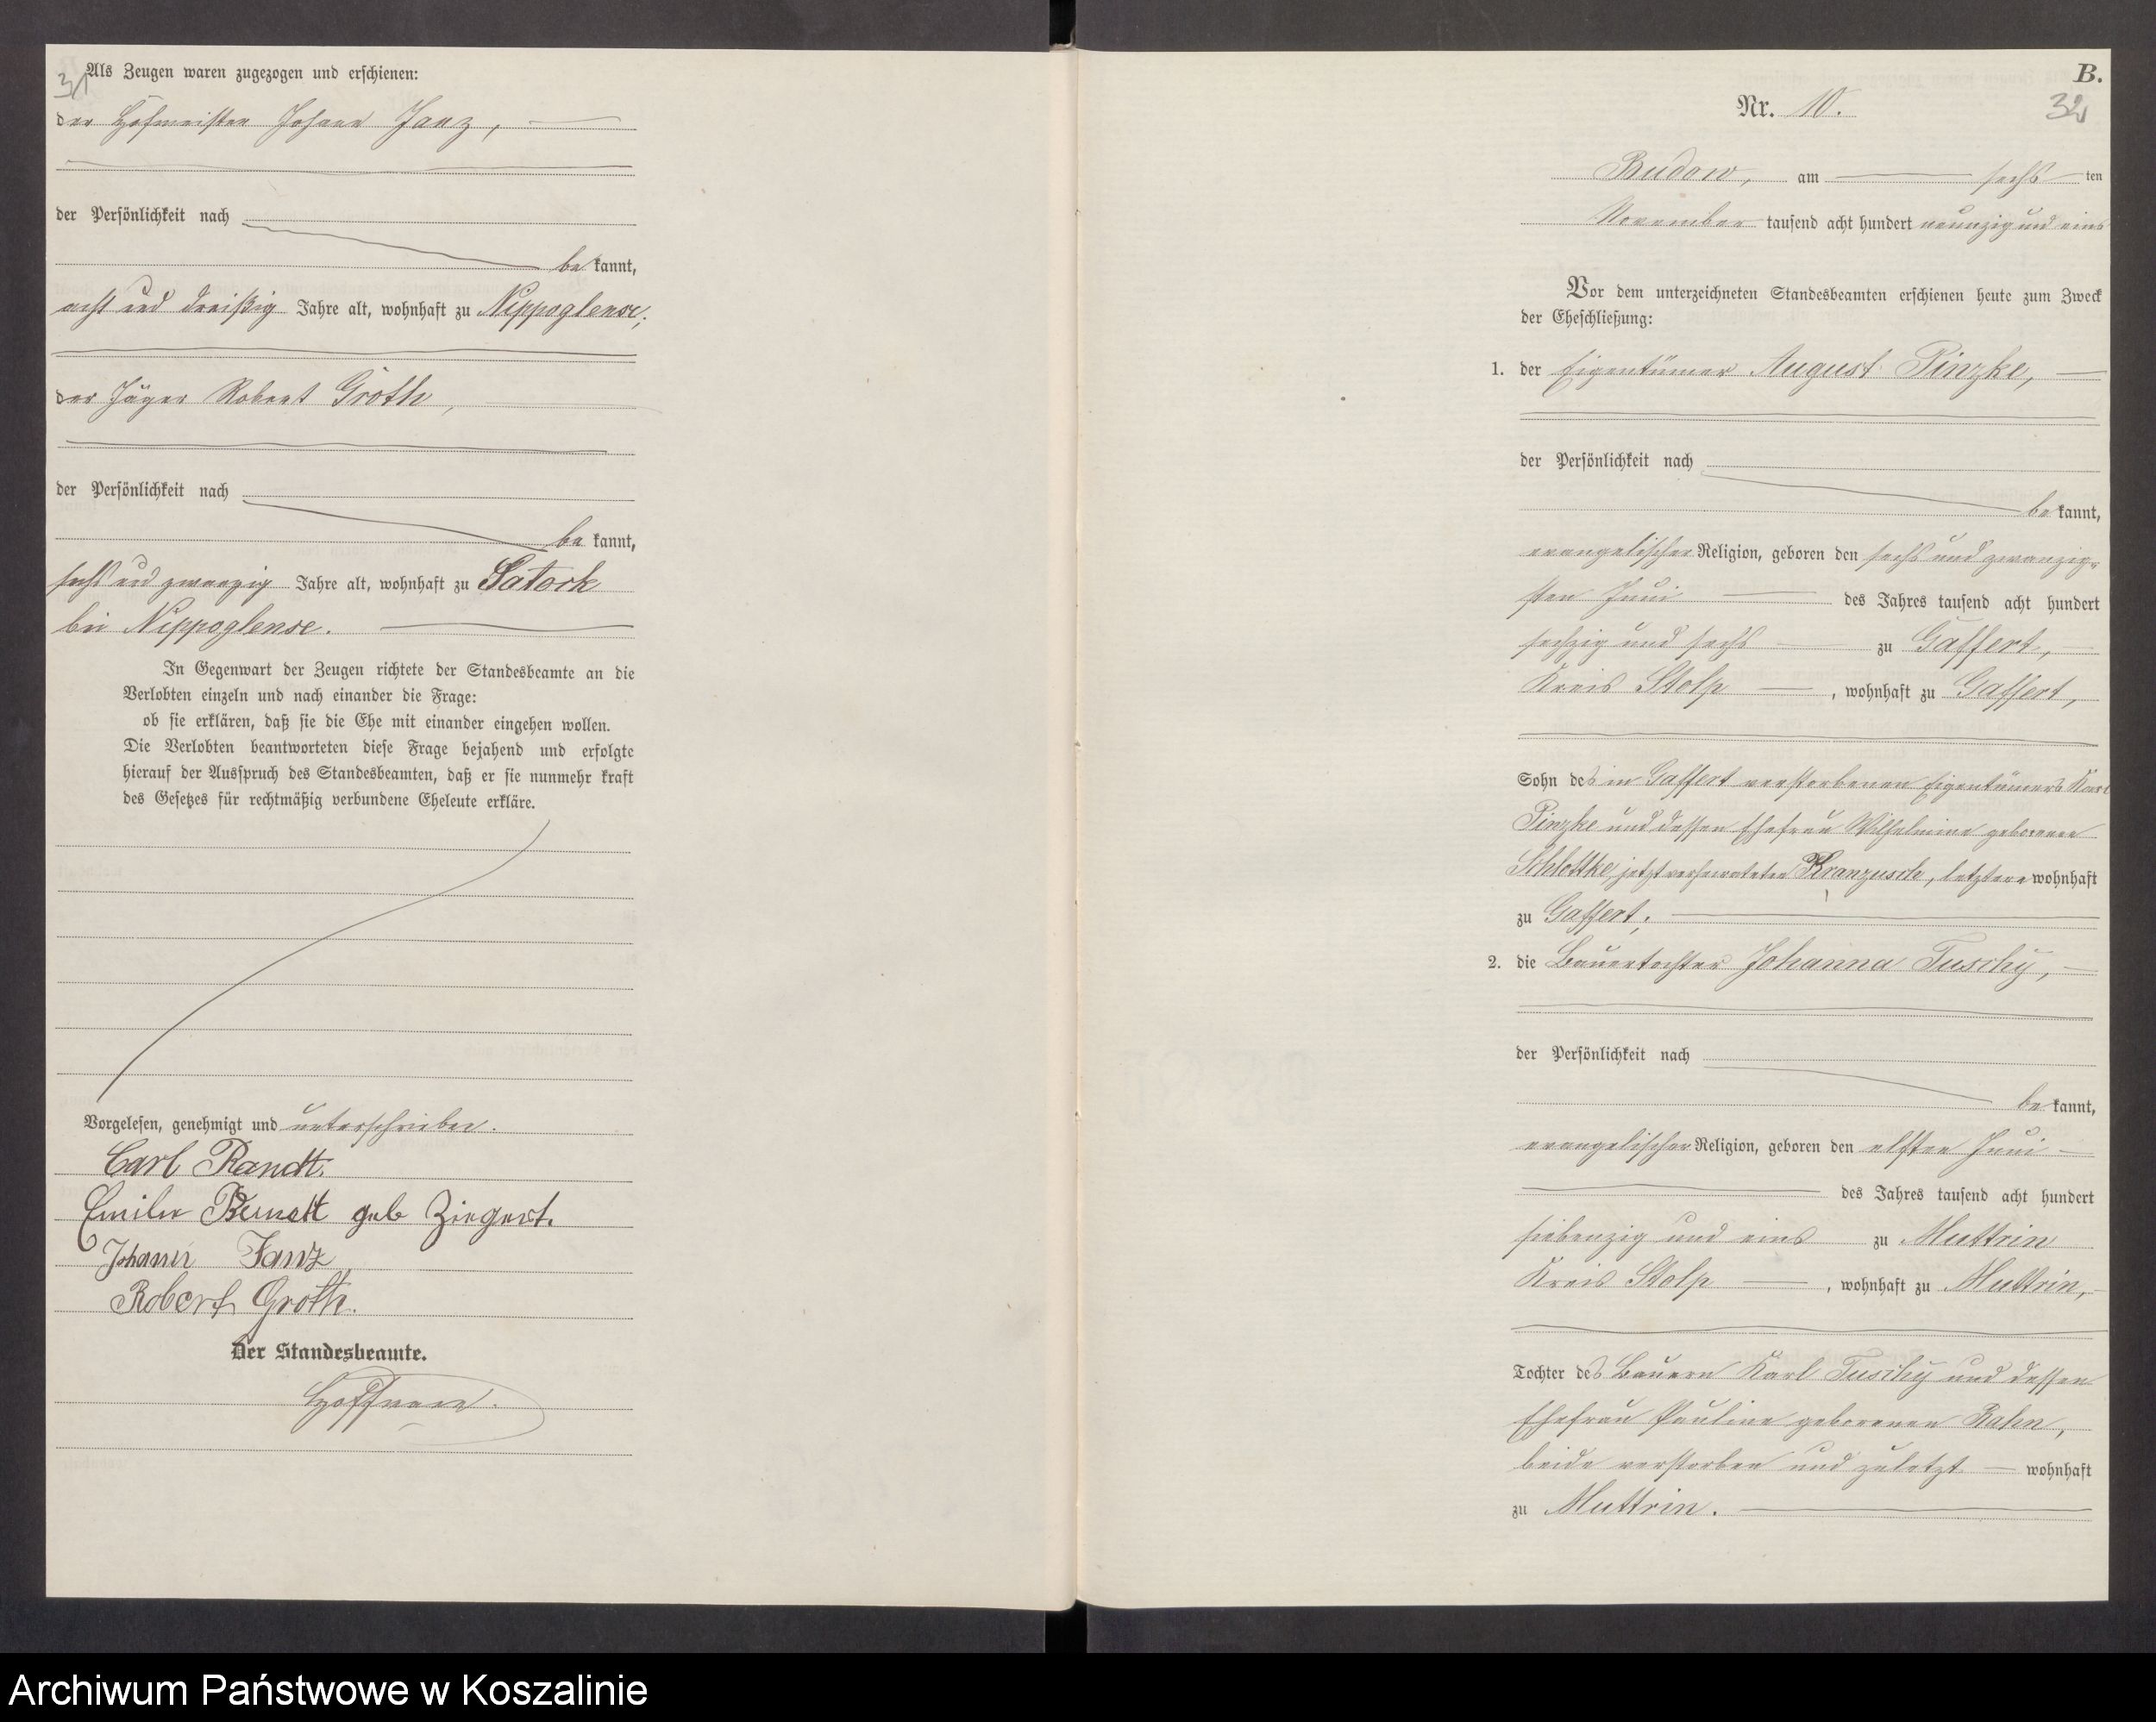 31
Als Zeugen waren zugezogen und erschienen:
der Hofmeister Johann Janz,
der Persönlichkeit nach
be kannt,
acht und dreißig Jahre alt, wohnhaft zu Nippoglense;
der Jäger Robert Groth,
der Persönlichkeit nach
be kannt,
sechs und zwanzig Jahre alt, wohnhaft zu Satock
bei Nippoglense.
In Gegenwart der Zeugen richtete der Standesbeamte an die
Verlobten einzeln und nach einander die Frage:
ob sie erklären, daß sie die Ehe mit einander eingehen wollen.
Die Verlobten beantworteten diese Frage bejahend und erfolgte
hierauf der Ausspruch des Standesbeamten, daß er sie nunmehr kraft
des Gesetzes für rechtmäßig verbundene Eheleute erkläre.
Vorgelesen, genehmigt und unterschrieben.
Carl
Emilie geb Ziegert.
Johann Janz
Robert Groth.
Der Standesbeamte.
Hoffmann.
B.
32
Nr. 10.
Budow, am sechs ten
November tausend acht hundert neunzig und eins
Vor dem unterzeichneten Standesbeamten erschienen heute zum Zweck
der Eheschließung:
1. der Eigentümer August Pinzke,
der Persönlichkeit nach
be kannt,
evangelischer Religion, geboren den sechs und zwanzig-
sten Juni des Jahres tausend acht hundert
sechzig und sechs zu Gaffert,
Kreis Stolp, wohnhaft zu Gaffert,
Sohn des in Gaffert verstorbenen Eigentümers Karl
Pinzke und dessen Ehefrau Wilhelmine geborenen
Schlottke jetzt verheirateten Kranzusch, letztere wohnhaft
zu Gaffert;
2. die Bauertochter Johanna Tuschy,
der Persönlichkeit nach
be kannt,
evangelischer Religion, geboren den elften Juni
des Jahres tausend acht hundert
siebenzig und eins zu Muttrin
Kreis Stolp, wohnhaft zu Muttrin,
Tochter des Bauern Karl Tuschy und dessen
Ehefrau Pauline geborenen Rahn,
beide verstorben und zuletzt wohnhaft
zu Muttrin.
Archiwum Państwowe w Koszalinie